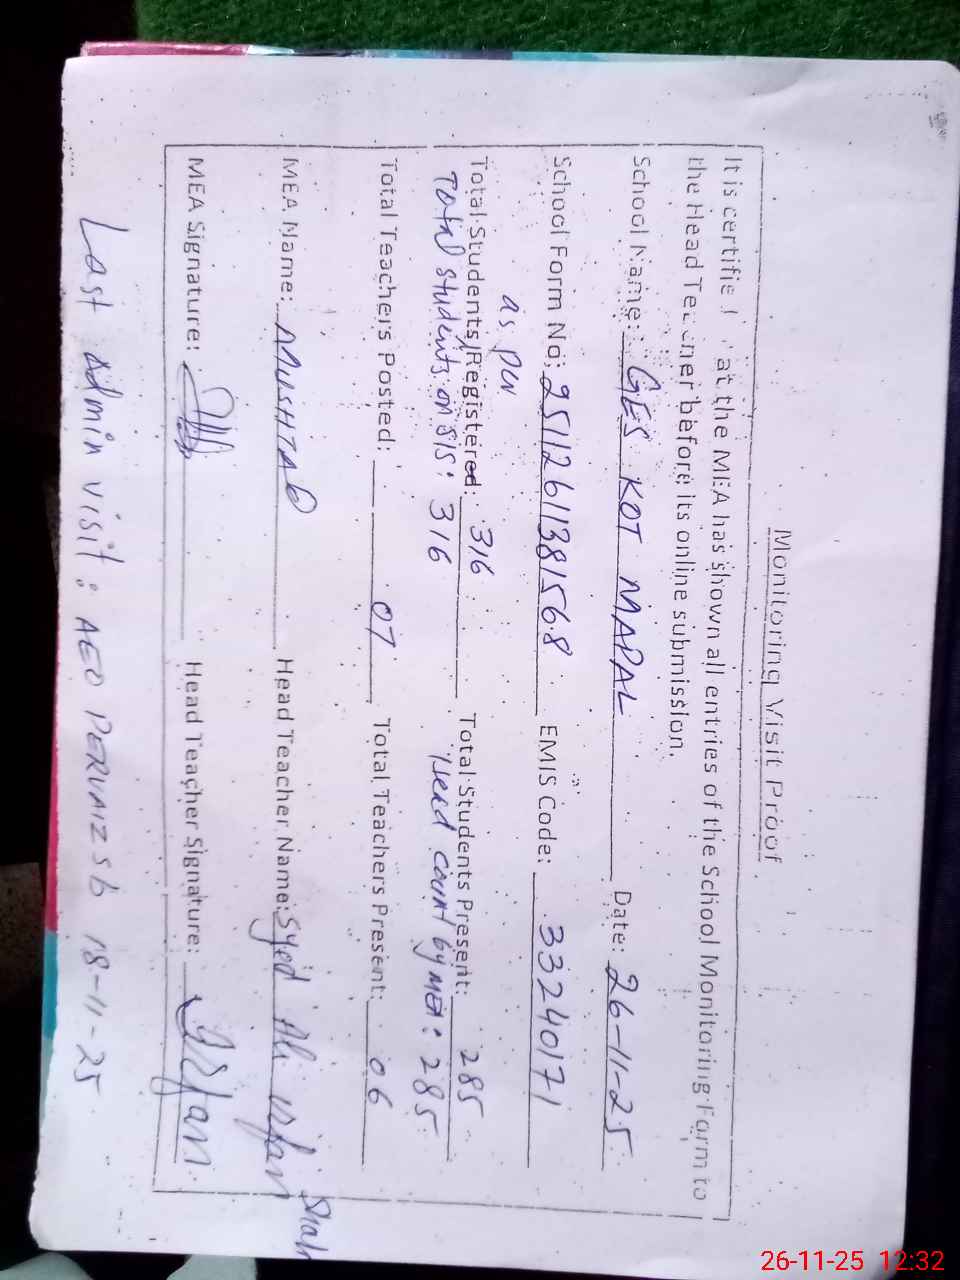 Monitoring Visit Proof
It is certified that the MEA has shown all entries of the School Monitoring Form to
the Head Teacher before its online submission.
School Name: GES KOT MAPAL Date: 26-11-25
School Form No: 25112611381568 EMIS Code: 33240171
as per
Total Students Registered: 316 Total Students Present: 285
Total students on SIS: 316 Head count by MEA: 285
Total Teachers Posted: 07 Total Teachers Present: 06
MEA Name: MUSHTAQ Head Teacher Name: Syed Ali irfan Shah
MEA Signature: Head Teacher Signature: Irfan
Last Admin visit: AEO PERVAIZ sb 18-11-25
26-11-25 12:32